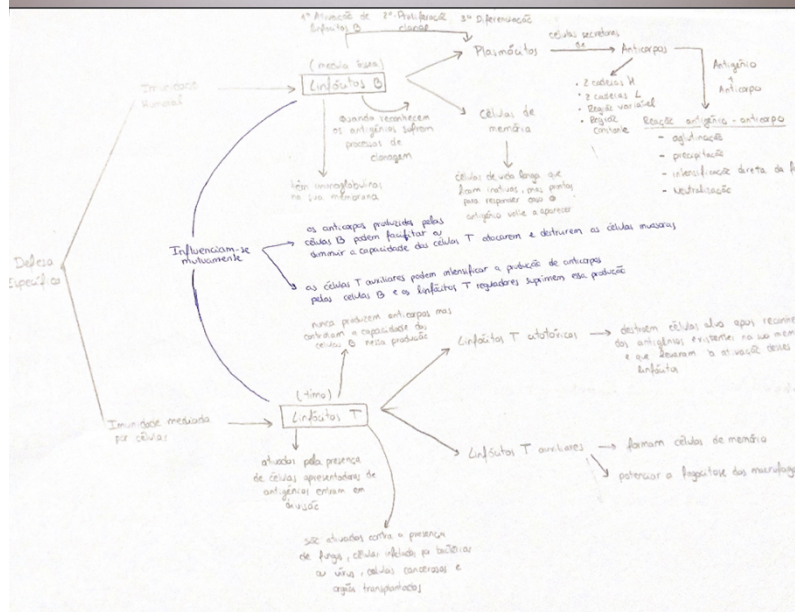 1º Ativação de linfócitos B
2º Proliferação clonal
3º Diferenciação
(medula óssea)
Linfócitos B
Plasmócitos
células secretoras
de
Anticorpos
Antigénio
Anticorpo
• 2 cadeias H
• 2 cadeias L
• Região variável
• Região
constante
Reação antigénio - anticorpo
- aglutinação
- precipitação
- intensificação direta da f
- Neutralização
Imunidade
Humoral
Quando reconhecem
os antigénios sofrem
processos de
clonagem
Células de
memória
têm imunoglobulinas
na sua membrana
células de vida longa que
ficam inativas, mas prontas
para responder caso o
antigénio volte a aparecer
Defesa
Específica
Influenciam-se
mutuamente
os anticorpos produzidos pelas
células B podem facilitar ou
diminuir a capacidade das células T atacarem e destruirem as células invasoras
as células T auxiliares podem intensificar a produção de anticorpos
pelas células B e os linfócitos T reguladores suprimem essa produção
nunca produzem anticorpos mas
controlam a capacidade das
células B nessa produção
Linfócitos T citotóxicos
destroem células alvo após reconhe
dos antigénios existentes na sua mem
e que levaram à ativação desses
linfócitos
(timo)
Linfócitos T
Imunidade mediada
por células
Linfócitos T auxiliares
formam células de memória
potenciar a fagocitose dos macrófago
ativados pela presença
de células apresentadoras de
antigénios entram em
divisão
são ativados contra a presença
de fungos, células infetadas por bactérias
ou vírus, células cancerosas e
orgãos transplantados